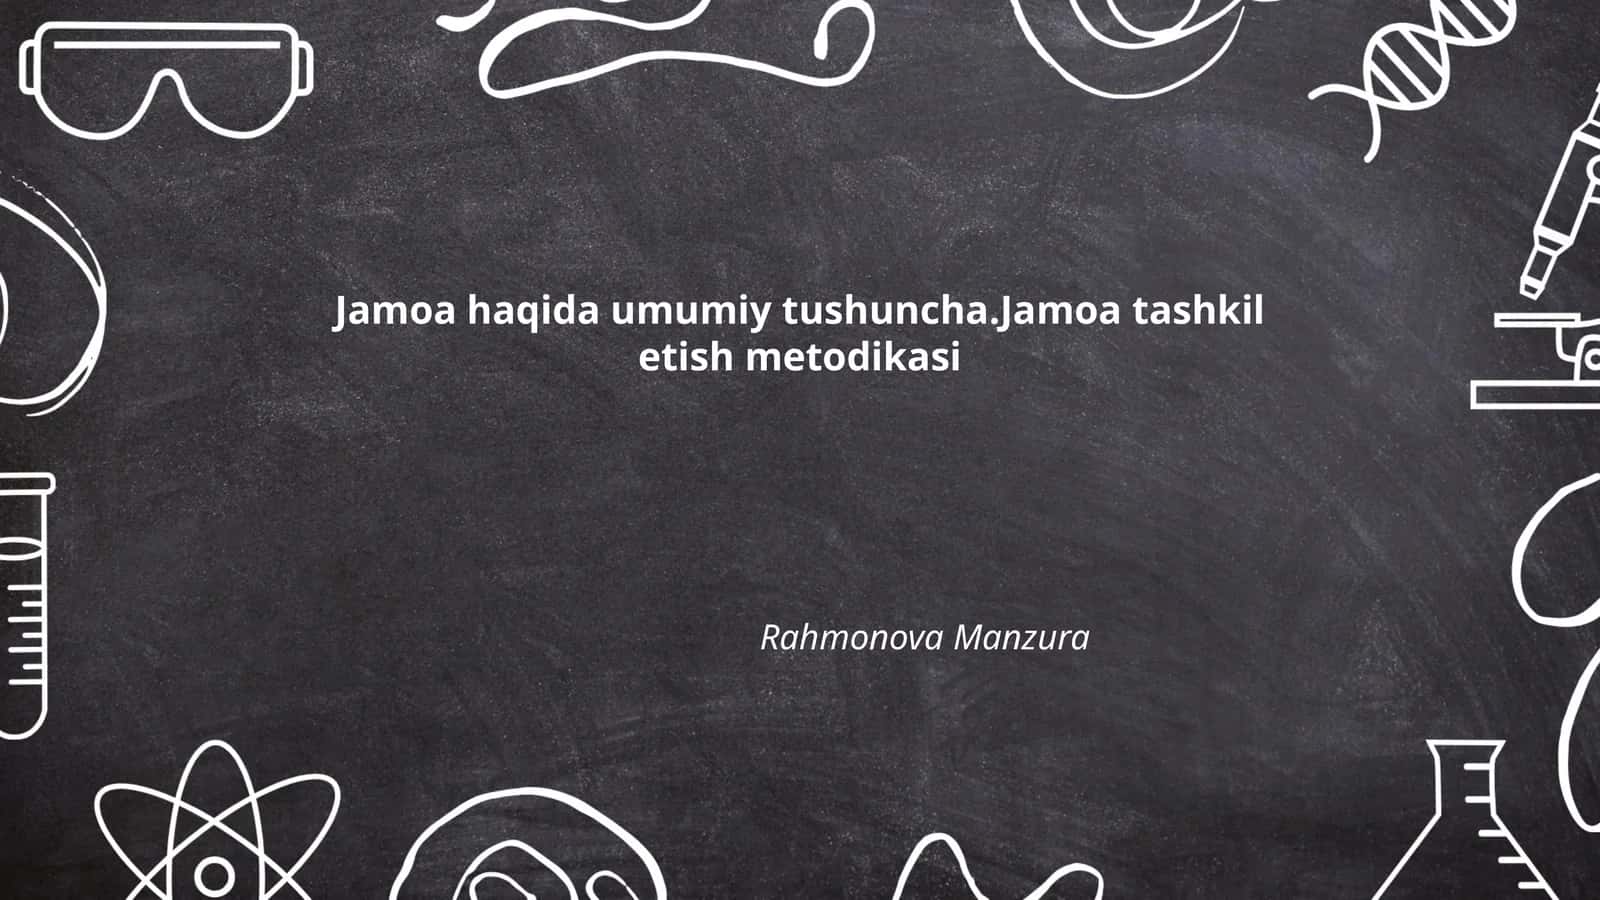 Jamoa haqida umumiy tushuncha.Jamoa tashkil
etish metodikasi
Rahmonova Manzura